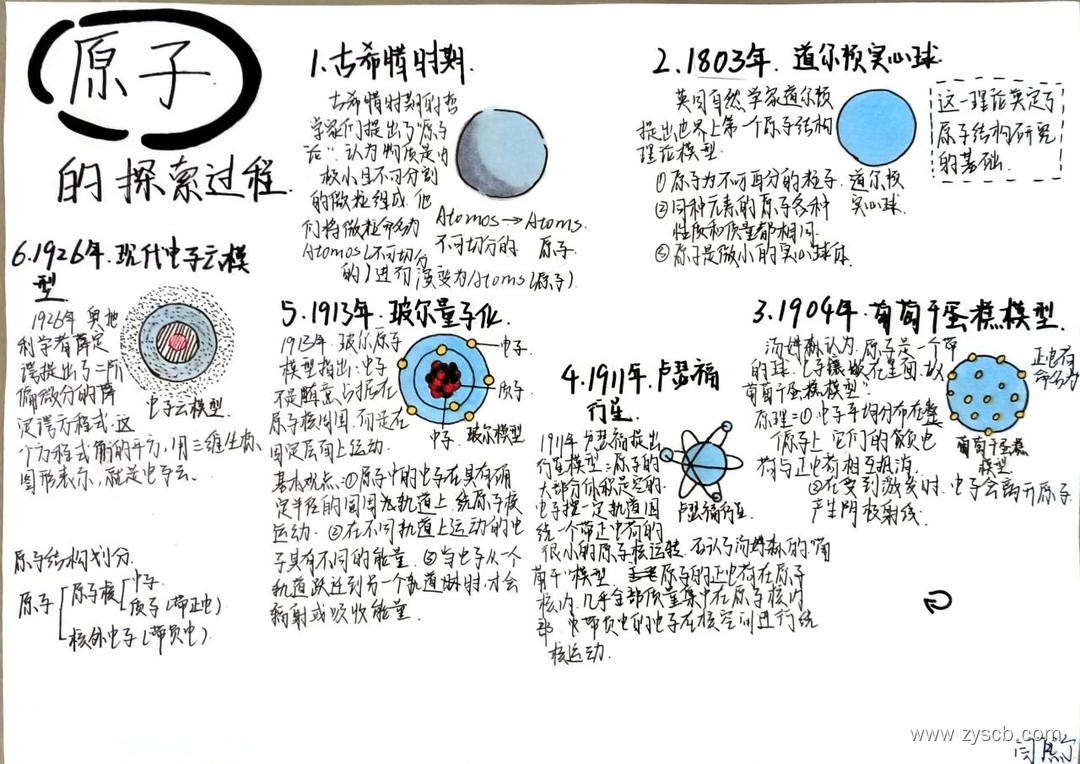 原子
的探索过程.
1.古希腊时期.
古希腊时期的哲
学家们提出了"原子
论".认为物质是由
极小且不可分割
的微粒组成.他
们将微粒命名为
Atomos(不可切分
的)进而演变为Atoms(原子).
Atomos→Atoms.
不可切分的 原子.
2.1803年.道尔顿实心球.
英国自然学家道尔顿
提出世界上第一个原子结构
理论模型.
①原子为不可再分的粒子.
②同种元素的原子各种
性质和质量都相同.
③原子是微小的实心球体.
道尔顿
实心球.
这一理论奠定了
原子结构研究
的基础.
3.1904年.葡萄干蛋糕模型.
汤姆森认为,原子是一个带
正电荷
葡萄干蛋糕模型"
原理=①电子平均分布在整
个原子上,它们的负电
荷与正电荷相互抵消.
②在受到激发时.电子会离开原子.
产生阴极射线.
葡萄干蛋糕
模型
4.1911年.卢瑟福
行星.
1911年卢瑟福提出
行星模型=原子的
大部分体积是空的.
电子按一定轨道围
绕一个带正电荷的
很小的原子核运转.否认了汤姆森的"葡
萄干"模型.原子的正电荷在原子
核内.几乎全部质量集中在原子核内
部.带负电的电子在核空间进行绕
核运动.
卢瑟福行星.
5.1913年.玻尔量子化.
1913年.玻尔原子
模型指出:电子
不是随意占据在
原子核周围.而是在
固定层面上运动.
基本观点=①原子中的电子在具有确
定半径的圆周轨道上.绕原子核
运动.②在不同轨道上运动的电
子具有不同的能量.③当电子从一个
轨道跃迁到另一个轨道时.才会
辐射或吸收能量.
电子.
质子.
中子.
玻尔模型
6.1926年.现代电子云模
型
1926年奥地
利学者薛定
谔提出了二阶
偏微分的薛
定谔方程式.这
个方程式的平方,用三维坐标
图形表示,就是电子云.
电子云模型.
原子结构划分.
原子
原子核
中子.
质子(带正电).
核外电子(带负电)
www.zyscb.com